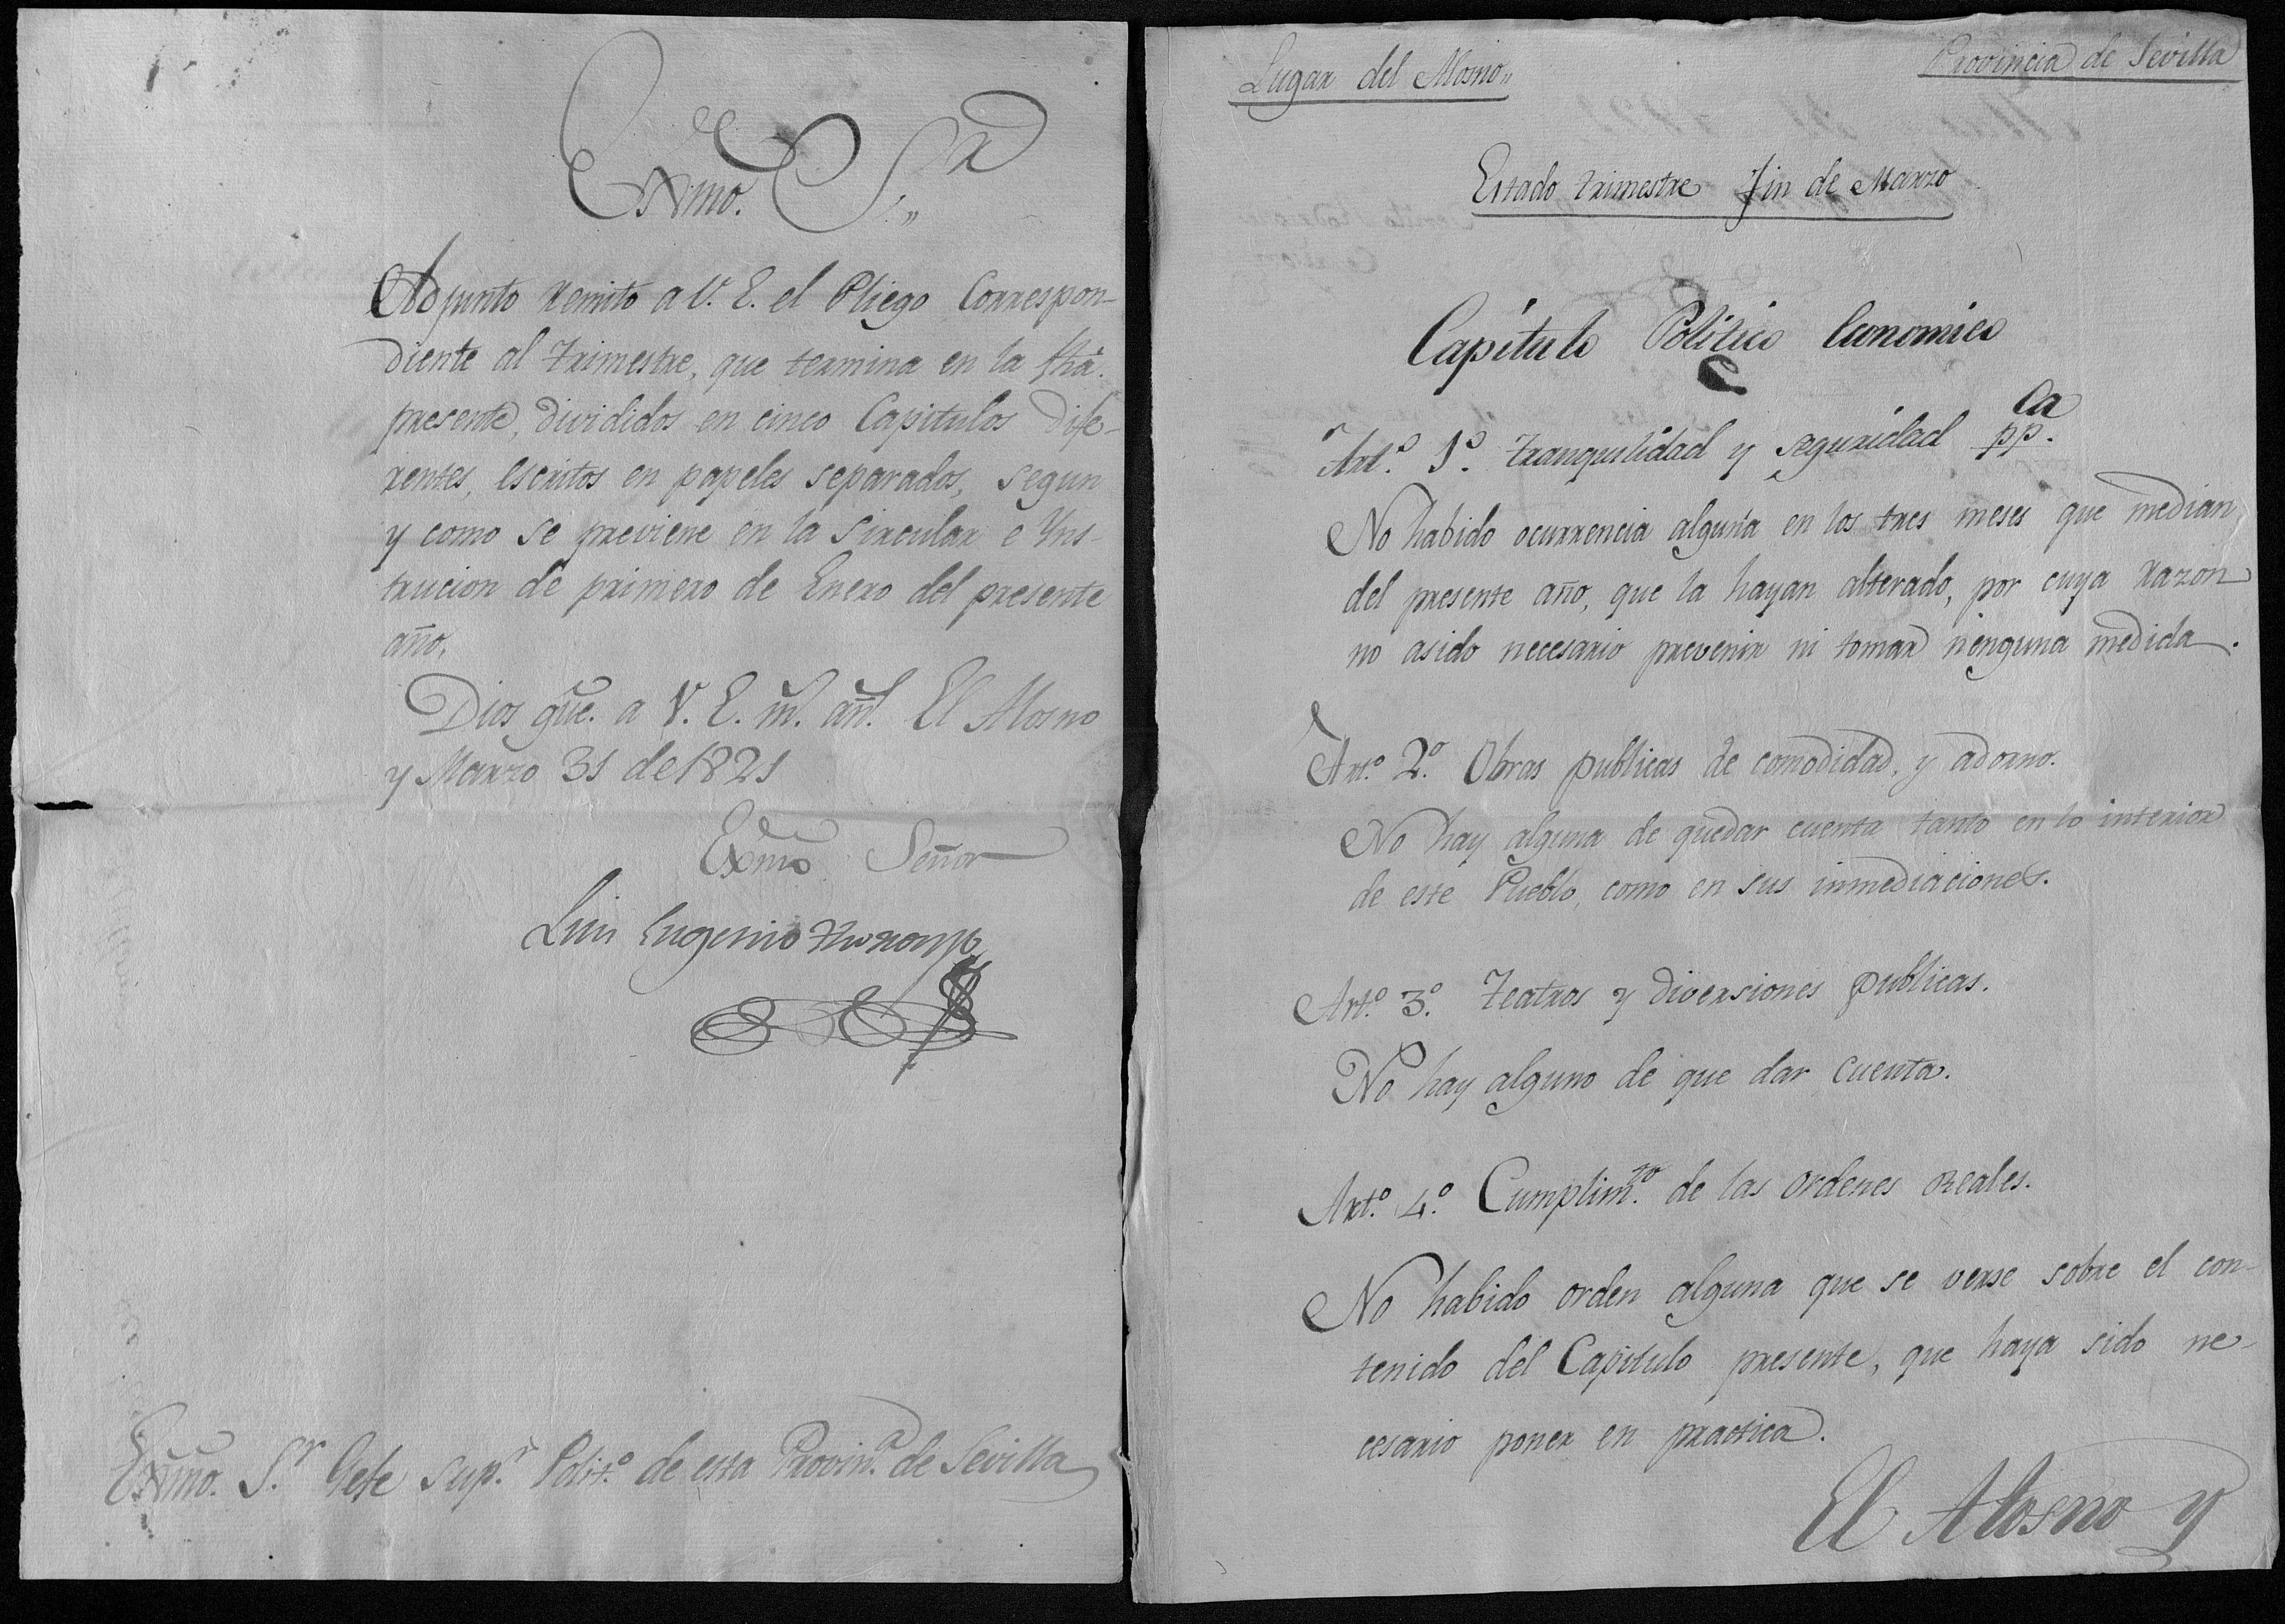 Exmo. S.or
Adjunto remito a V. E. el Pliego Correspon-
diente al trimestre, que termina en la fha.
presente, divididos en cinco Capitulos dife-
rentes, escritos en papeles separados, segun
y como se previene en la Sircular e Yns-
trucion de primero de Enero del presente
año.
Dios gûe. a V. E. m.s añ.s El Alosno
y Marzo 31 de 1821
Exmo Señor
Luis Eugenio
Exmo. S.r Gefe sup.r Polit.o de esta Provin.a de Sevilla
Lugar del Alosno"
Provincia de Sevilla
Estado trimestre fin de Marzo
Capítulo Político Economico
Art.o 1.o tranquilidad y seguridad pp.ca
No habido ocurrencia alguna en los tres meses que median
del presente año, que la hayan alterado, por cuya razon
no asido necesario prevenir ni tomar ninguna medida.
Art.o 2.o Obras publicas de comodidad, y adorno.
No hay alguna de quedar cuenta tanto en lo interior
de este Pueblo, como en sus inmediaciones.
Art.o 3.o Teatros y diversiones publicas.
No hay alguno de que dar cuenta.
Art.o 4.o Cumplim.to de las ordenes Reales.
No habido orden alguna que se verse sobre el con-
tenido del Capitulo presente, que haya sido ne-
cesario poner en practica.
El Alosno y